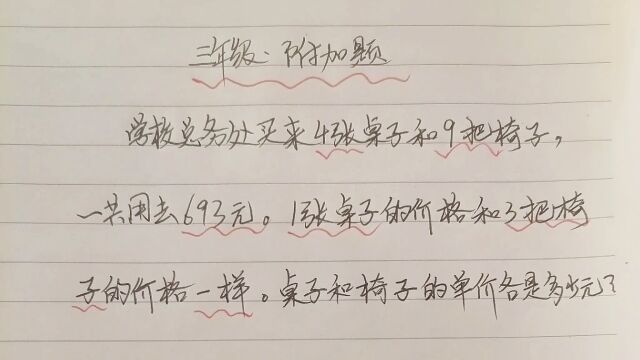 三年级·附加题
学校总务处买来4张桌子和9把椅子，
一共用去693元。1张桌子的价格和3把椅
子的价格一样。桌子和椅子的单价各是多少元？